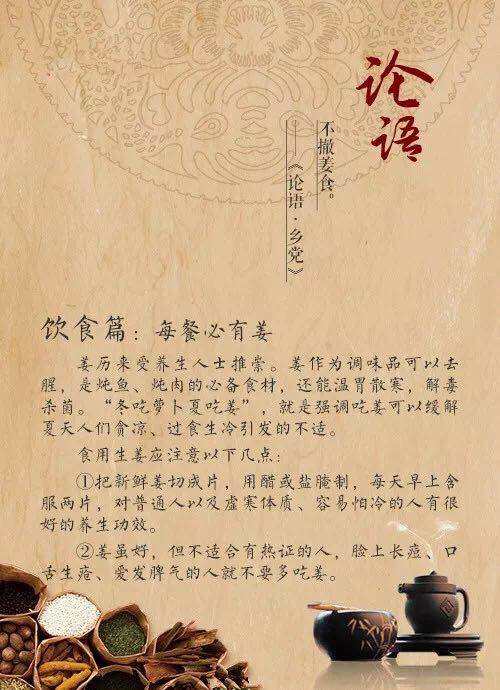 论语
不撤姜食。
——《论语·乡党》
饮食篇：每餐必有姜
姜历来受养生人士推崇。姜作为调味品可以去
腥，是炖鱼、炖肉的必备食材，还能温胃散寒，解毒
杀菌。“冬吃萝卜夏吃姜”，就是强调吃姜可以缓解
夏天人们贪凉、过食生冷引发的不适。
食用生姜应注意以下几点：
①把新鲜姜切成片，用醋或盐腌制，每天早上含
服两片，对普通人以及虚寒体质、容易怕冷的人有很
好的养生功效。
②姜虽好，但不适合有热证的人，脸上长痘、口
舌生疮、爱发脾气的人就不要多吃姜。